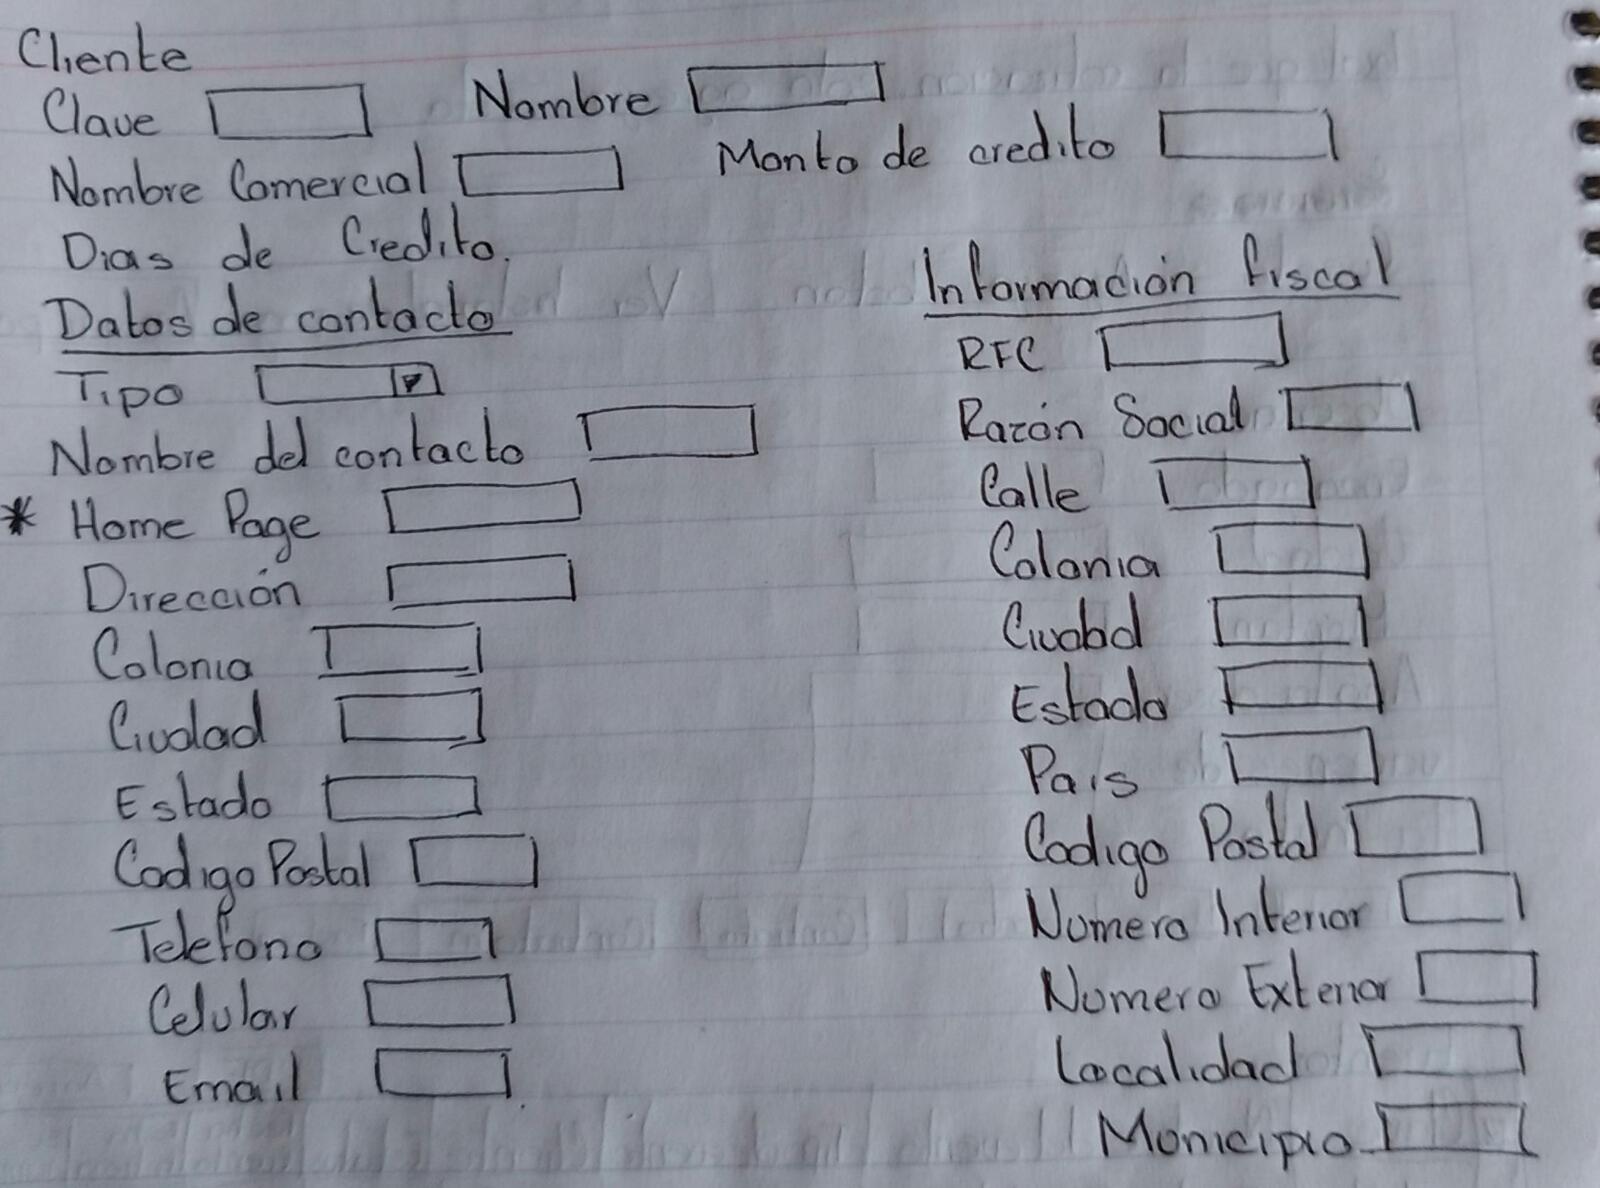 Cliente
Clave Nombre
Nombre Comercial Monto de credito
Dias de Credito.
Datos de contacto
Tipo
Nombre del contacto
* Home Page
Dirección
Colonia
Ciudad
Estado
Codigo Postal
Telefono
Celular
Email
Información fiscal
RFC
Razón Social
Calle
Colonia
Ciudad
Estado
Pais
Codigo Postal
Numero Interior
Numero Exterior
Localidad
Municipio